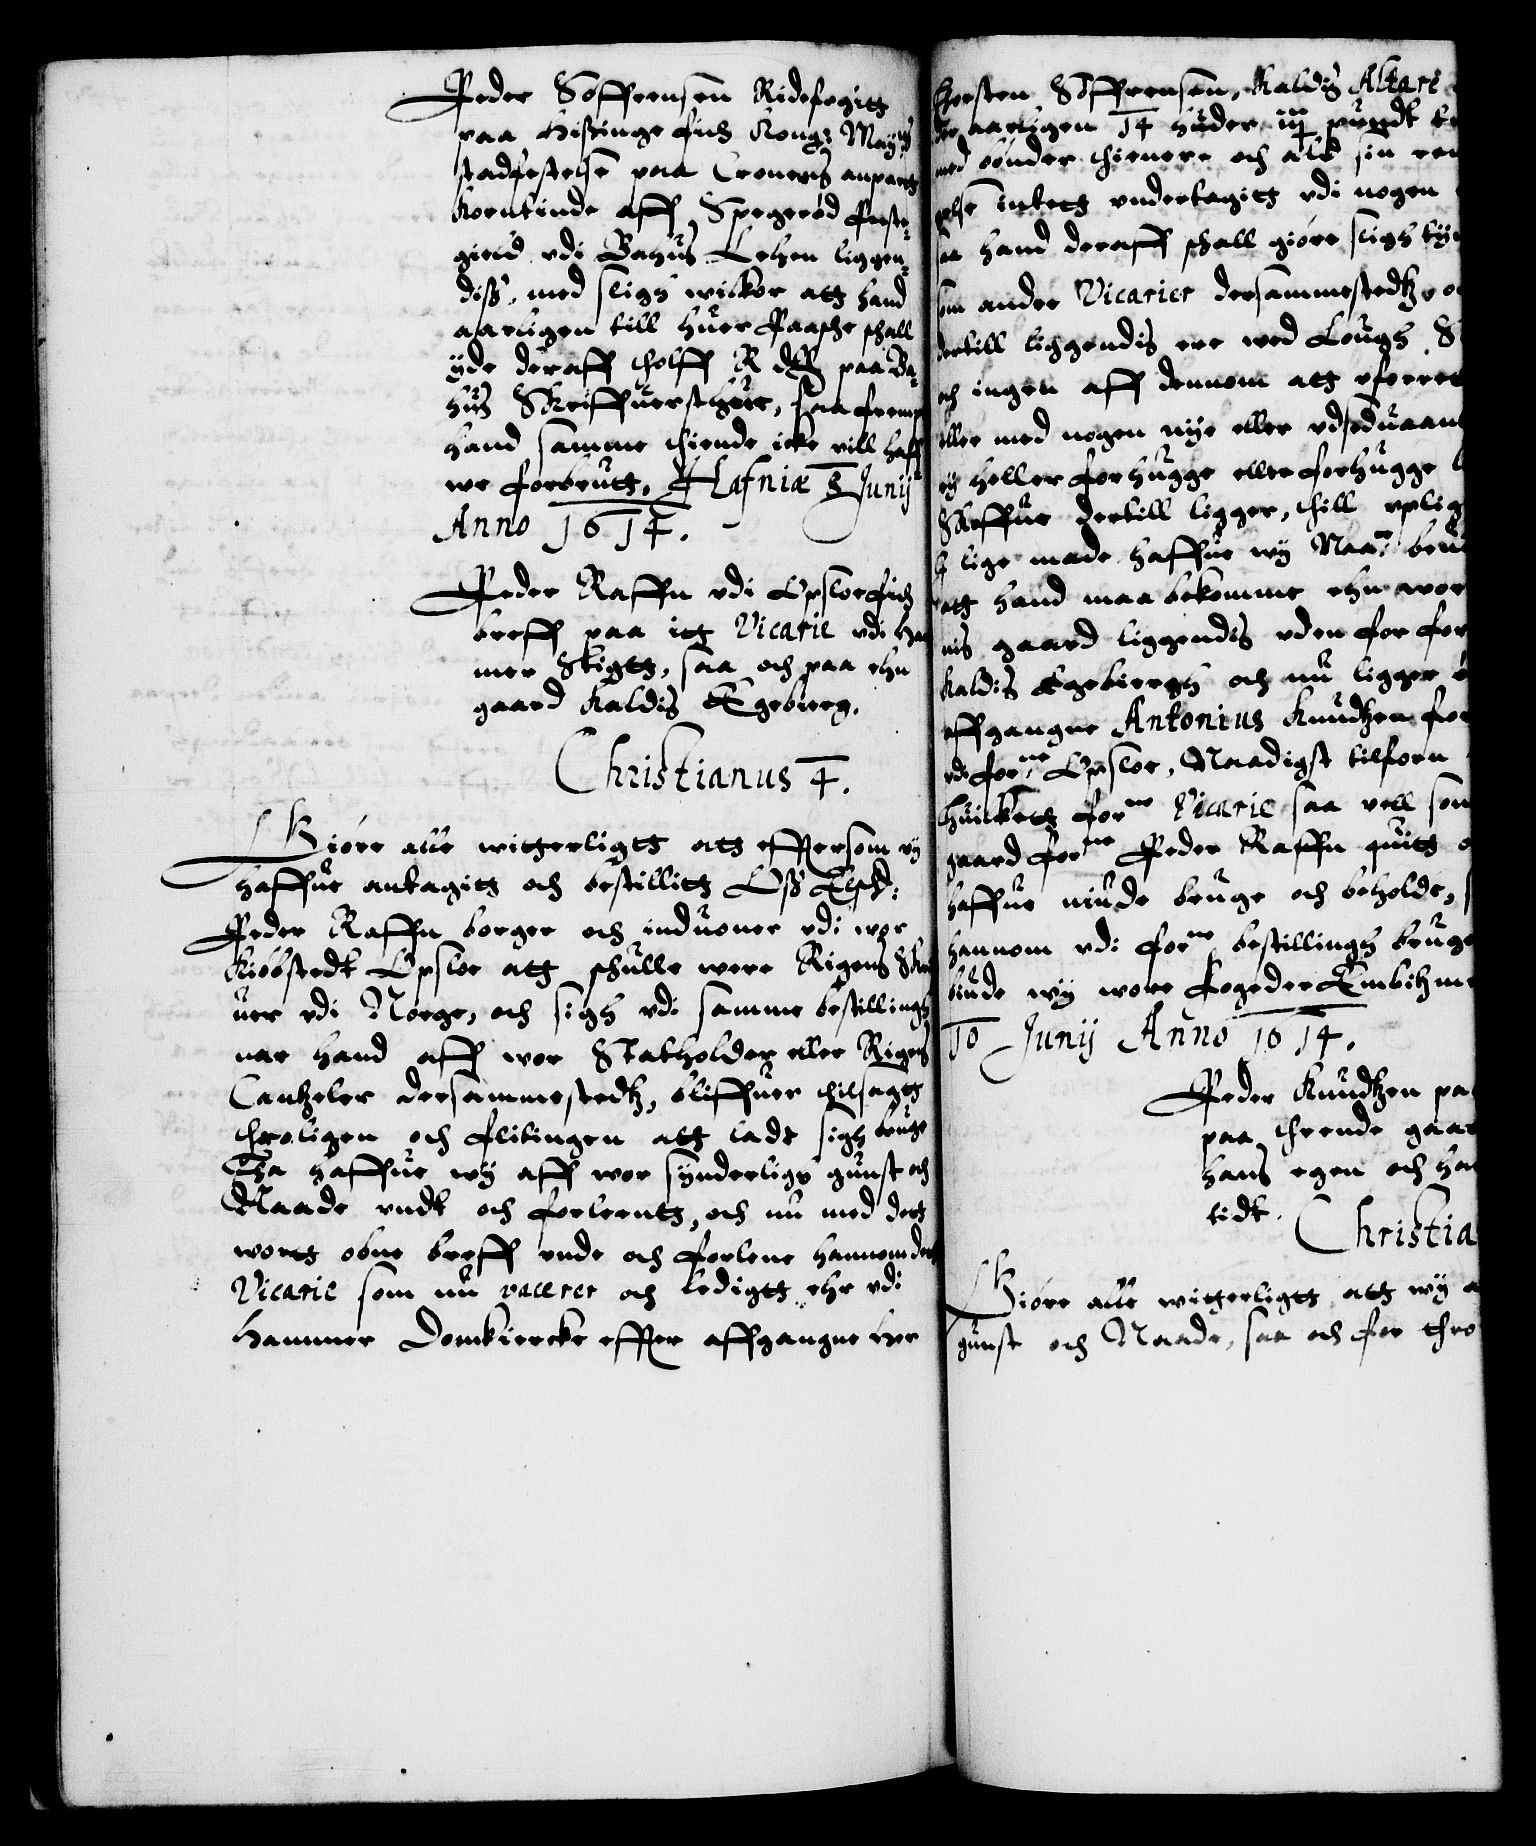 Peder Søffrensen Ridefogitt
paa Hißinge fich Kong: Mayts
stadfestelse paa Cronens anpart
Korntiende aff Spegerød Preste-
gield vdi Bahus Lehen liggen-
diß, med sligh wilkor att hand
aarligen till huer Paasche schall
yde deraff tholff R dlr paa Ba-
hus Skriffuerstue, saa fremp
hand samme thiende icke vill haff
we forbrutt, Hafniæ 3 Junij
Anno 1614.
Peder Raffn vdi Opsloe fich
breff paa itt Vicarie vdi Ham
mer Stigtt, saa och paa ehn
gaard kaldis Egebierg.
Christianus 4.
Giøre alle witterligtt att effttersom wy
haffue antagitt och bestillitt Oß Elsk:
Peder Raffn borger och induoner vdi wor
kiøbstedt Opsloe att schulle were Rigens Skriff
uer vdi Norge, och sigh vdi samme bestillingh
nar hand aff wor Statholder eller Rigens
Cantzeler dersammestedtz, bliffuer thilsagtt
throligen och flitingen att lade sigh bruge
Tha haffue wy aff wor synderlige gunst och
Naade undt och forlentt, och nu med dett
wortt obne breff unde och forlene hannom dett
Vicarie som nu vacerer och ledigtt ehr vdi
Hammer Domkiercke effter affgangne her
Thorsten Søffrensen, kaldis Altare
der aarligen 14 huder, pundt
med bønder thienere och ald sin ren
gelse inteth vndertagitt vdi nogen
saa hand deraff schall giøre sligh tyn
som andre Vicarier dersammestedtz, o
dertill liggendis ere wed Lough S
och ingen aff dennom att vforrett
eller med nogen nye eller vdseduaanl
ey heller forhugge eller forhugge l
Skoffue dertill ligger, thill vplig
J lige made haffue wy Naa: beui
att hand maa bekomme ehn wor
nis gaard liggendis vden for for
kaldis Egebiergh och nu ligger
affgangne Antonius Knudtzen for
vdi forne Opsloe, Naadigst tilforn
huilkett forne Vicarie saa vell som
gaard forne Peder Raffn quitt o
haffue niude bruge och beholde, s
hannom vdi forne bestillingh bruge
biude wy wore fogeder Embitzme
10 Junij Anno 1614.
Peder Knudtzen pa
paa thrende gaar
hans egen och ha
tidt.
Christia
Giøre alle witterligtt att wy a
gunst och Naade, saa och for thro